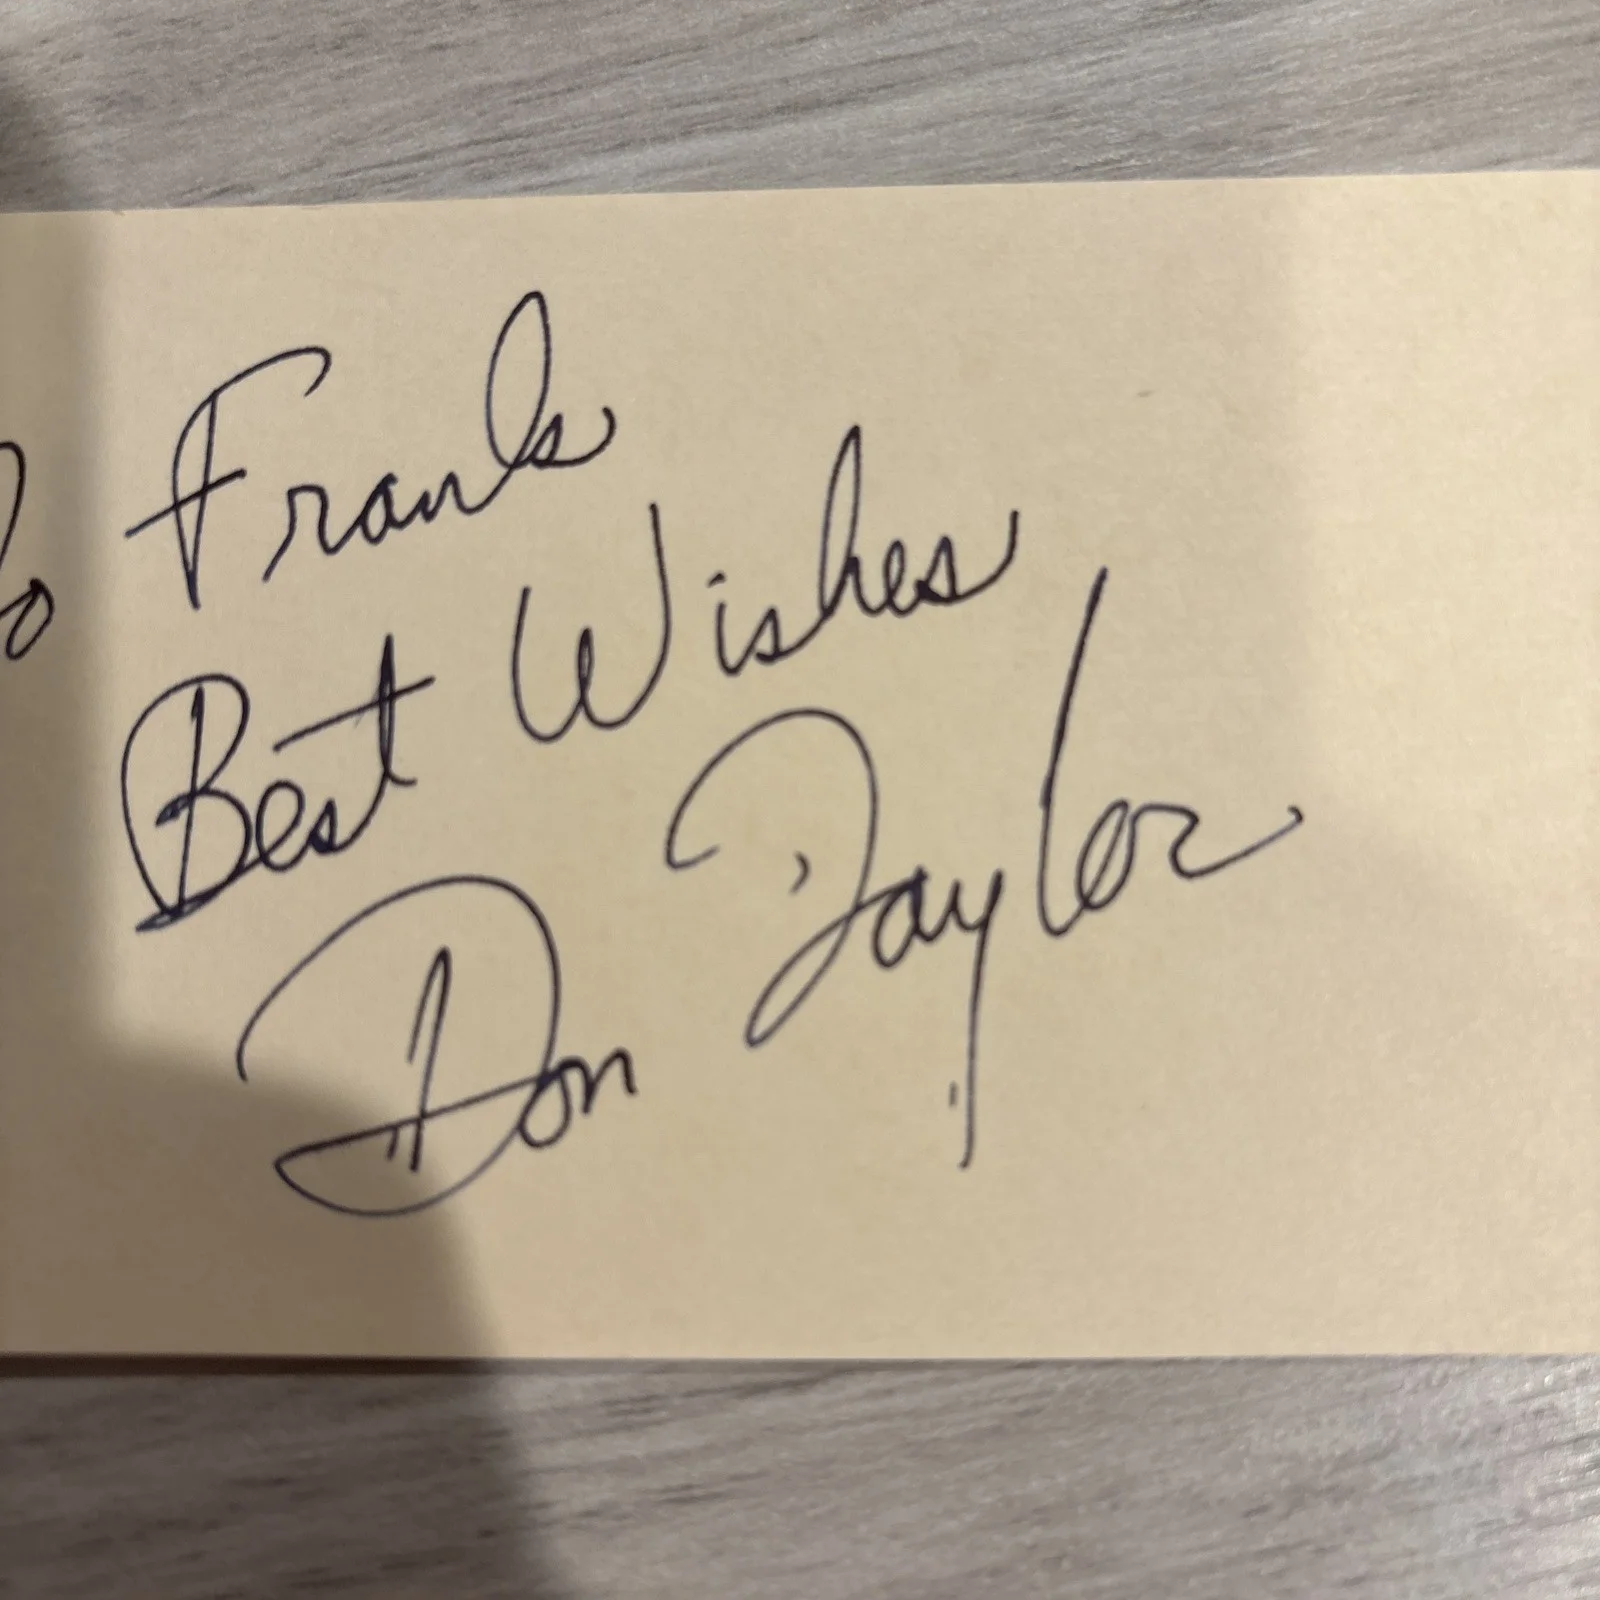 To Frank
Best Wishes
Don Taylor